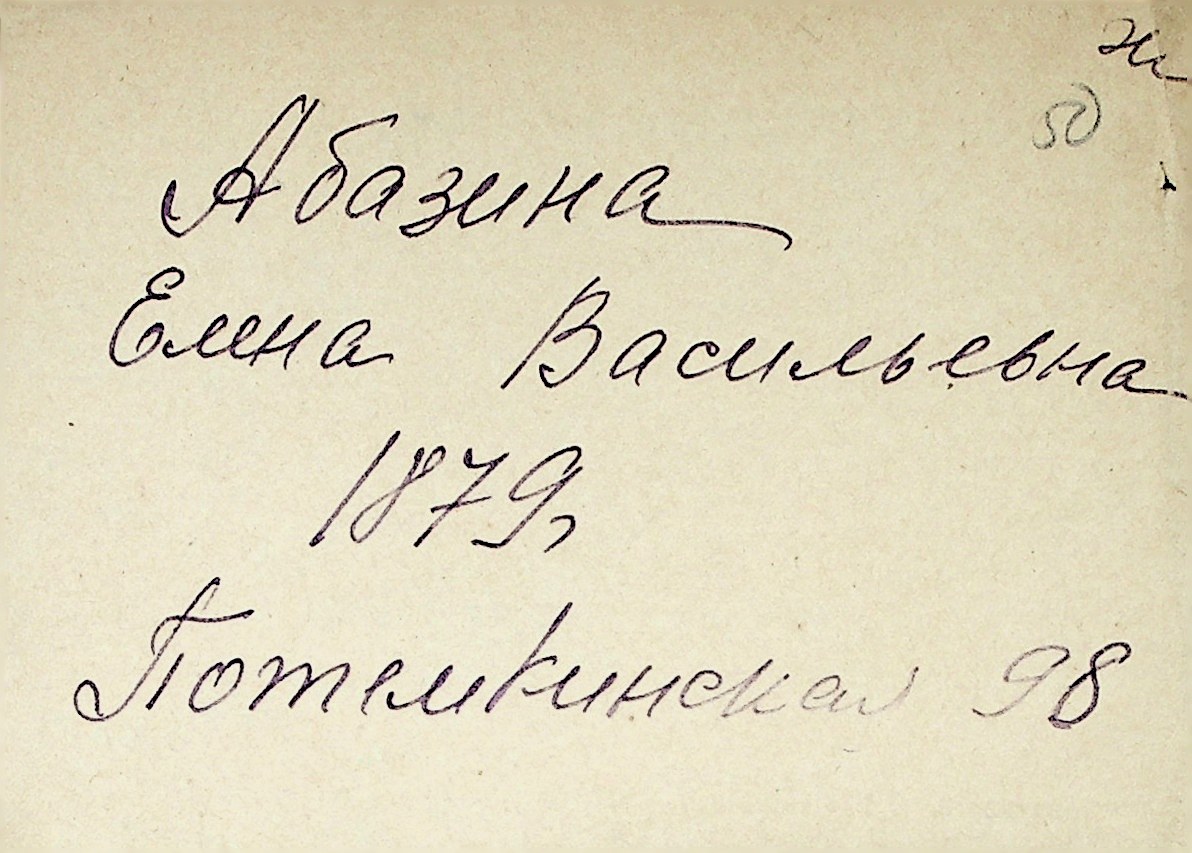 ж
50
Абазина
Елена Васильевна
1879г
Потемкинская 98